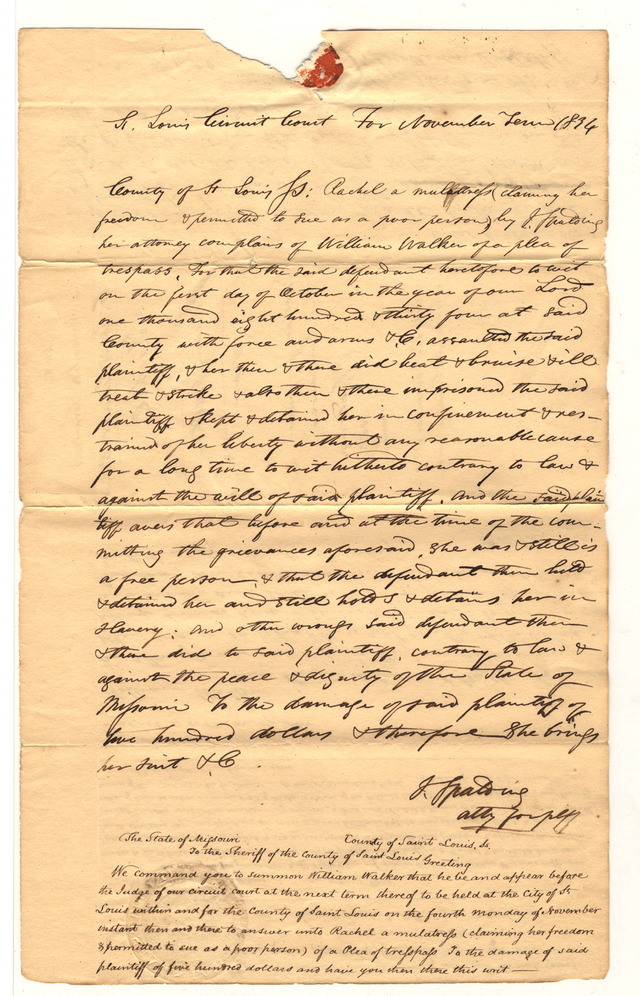 St. Louis Circuit Court For November Term 1834
County of St Louis Ss: Rachel a mulattress (claiming her
freedom & permitted to sue as a poor person) by J. Spalding
her attorney complains of William Walker of a plea of
trespass, For that the said defendant heretofore to wit
on the first day of October in the year of our Lord
one thousand eight hundred & thirty four at said
County with force and arms &C, assaulted the said
plaintiff, & her then & there did beat & bruise & ill
treat & strike & also then & there imprisoned the said
plaintiff & kept & detained her in confinement & res-
trained of her liberty without any reasonable cause
for a long time to wit hitherto contrary to law &
against the will of said plaintiff. And the said plain
tiff avers that before and at the time of the com-
mitting the grievances aforesaid, she was & still is
a free person, & that the defendant then held
& detained her and still holds & detains her in
slavery: and other wrongs said defendant then
& there did to said plaintiff, contrary to law &
against the peace & dignity of the State of
Missouri To the damage of said plaintiff of
five hundred dollars & therefore she brings
her suit &C
J. Spalding
atty for plff
The State of Missouri County of Saint Louis, Ss.
To the Sheriff of the County of Saint Louis Greeting
We command you to summon William Walker that he be and appear before
the Judge of our circuit court at the next term thereof to be held at the City of St
Louis within and for the County of Saint Louis on the fourth Monday of November
instant then and there to answer unto Rachel a mulatress (claiming her freedom
& permitted to sue as a poor person) of a Plea of tresspass To the damage of said
plaintiff of five hundred dollars and have you then there this writ —